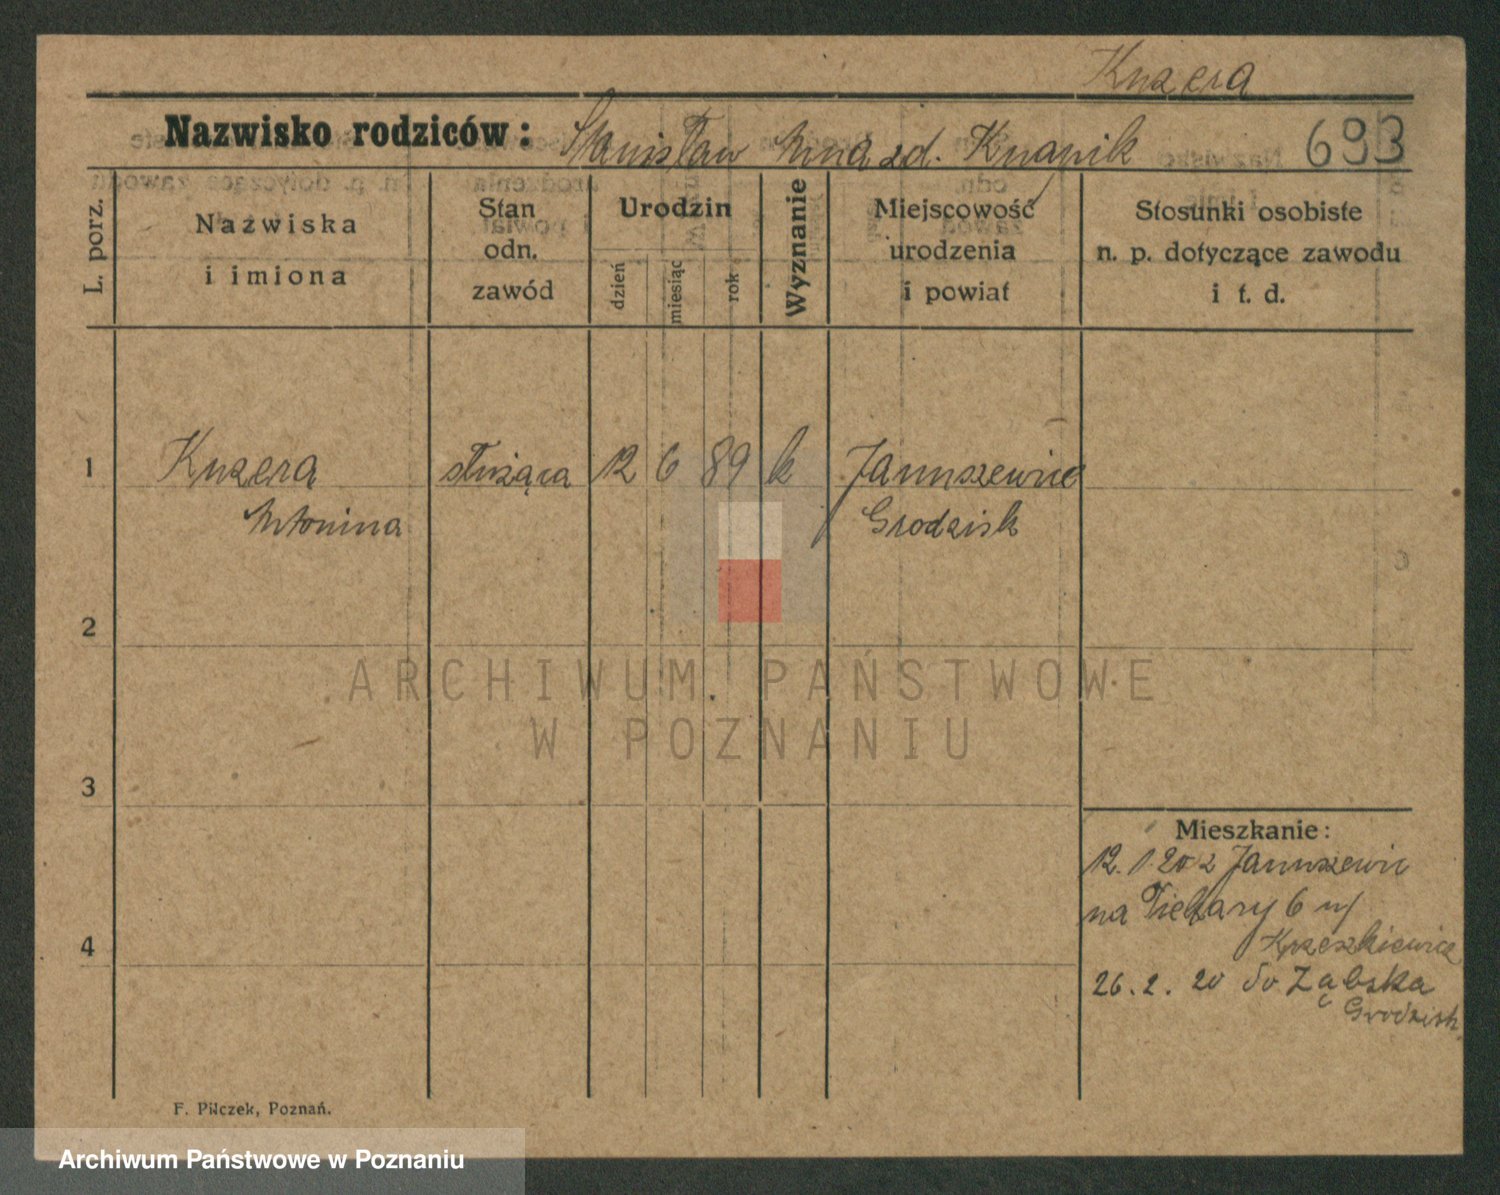 Kuzera
Nazwisko rodziców: Stanisław Anna zd. Knapik 693
L. porz.
Nazwiska i imiona
Stan odn. zawód
Urodzin
dzień miesiąc rok
Wyznanie
Miejscowość urodzenia i powiat
Stosunki osobiste n. p. dotyczące zawodu i t. d.
1 Kuzera służąca 12 6 89 k Januszewice
Antonina Grodzisk
2
3
4
Mieszkanie:
12. 1. 20 z Januszewic
na Piekary 6 u/
26. 2. 20 do Ząbska
Grodzisk
F. Pilczek, Poznań.
ARCHIWUM PAŃSTWOWE
W POZNANIU
Archiwum Państwowe w Poznaniu